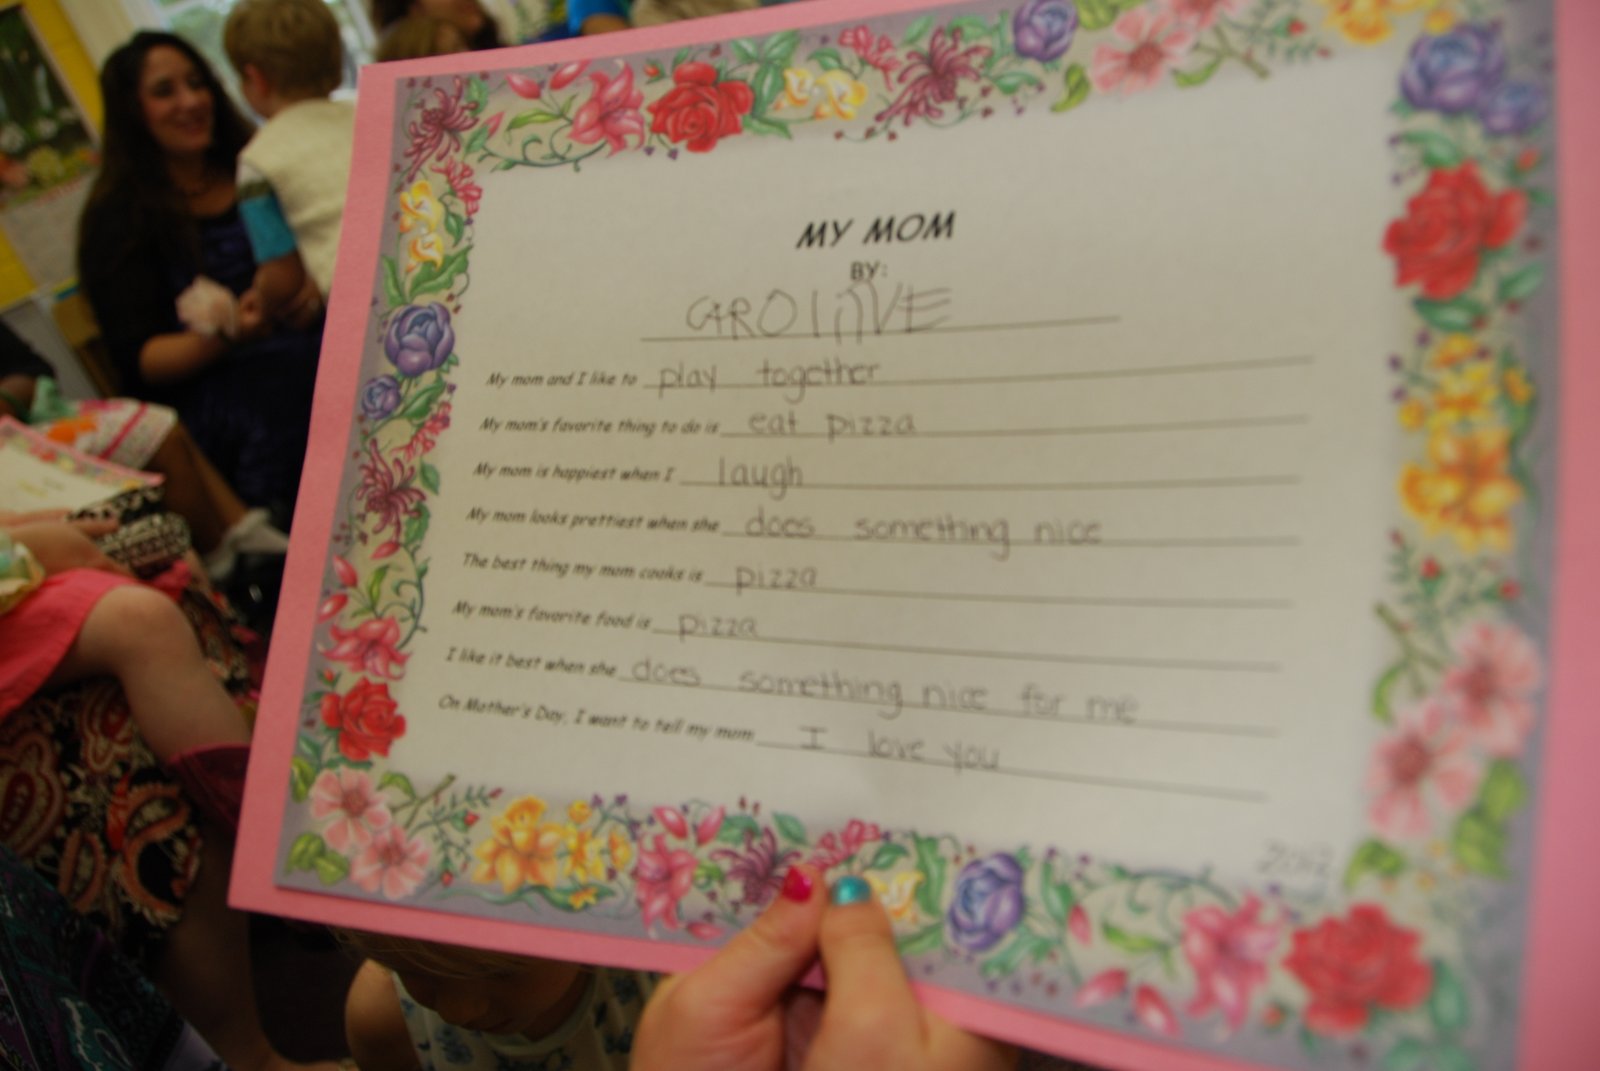 MY MOM
BY:
CAROlINE
My mom and I like to play together
My mom's favorite thing to do is eat pizza
My mom is happiest when I laugh
My mom looks prettiest when she does something nice
The best thing my mom cooks is pizza
My mom's favorite food is pizza
I like it best when she does something nice for me
On Mother's Day, I want to tell my mom I love you
2012